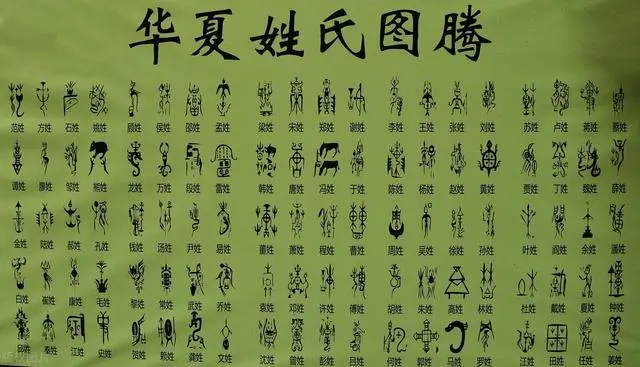 华夏姓氏图腾
范姓 方姓 石姓 姚姓 顾姓 侯姓 邵姓 孟姓 梁姓 宋姓 郑姓 谢姓 李姓 王姓 张姓 刘姓 苏姓 卢姓 蒋姓 蔡姓
谭姓 廖姓 邹姓 熊姓 龙姓 万姓 段姓 雷姓 韩姓 唐姓 冯姓 于姓 陈姓 杨姓 赵姓 黄姓 贾姓 丁姓 魏姓 薛姓
金姓 陆姓 郝姓 孔姓 钱姓 汤姓 尹姓 易姓 董姓 萧姓 程姓 曹姓 周姓 吴姓 徐姓 孙姓 叶姓 阎姓 余姓 潘姓
白姓 崔姓 康姓 毛姓 黎姓 常姓 武姓 乔姓 袁姓 邓姓 许姓 傅姓 胡姓 朱姓 高姓 林姓 杜姓 戴姓 夏姓 钟姓
吕姓 秦姓 江姓 史姓 贺姓 赖姓 龚姓 文姓 沈姓 曾姓 彭姓 吕姓 何姓 郭姓 马姓 罗姓 汪姓 田姓 任姓 姜姓